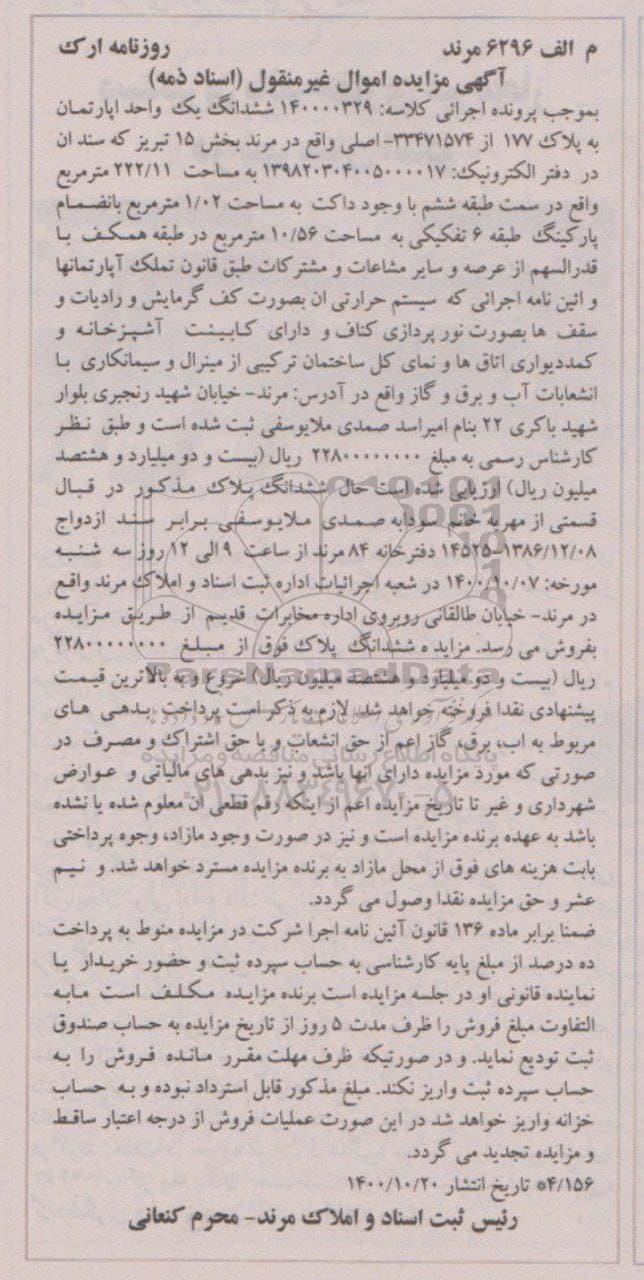 م الف ۶۲۹۶ مرند روزنامه ارک
آگهی مزایده اموال غیرمنقول (اسناد ذمه)
بموجب پرونده اجرائی کلاسه: ۱۴۰۰۰۰۳۲۹ ششدانگ یک واحد اپارتمان
به پلاک ۱۷۷ از ۳۳۴۷۱۵۷۴- اصلی واقع در مرند بخش ۱۵ تبریز که سند ان
در دفتر الکترونیک: ۱۳۹۸۲۰۳۰۴۰۰۵۰۰۰۰۱۷ به مساحت ۲۲۲/۱۱ مترمربع
واقع در سمت طبقه ششم با وجود داکت به مساحت ۱/۰۲ مترمربع بانضمام
پارکینگ طبقه ۶ تفکیکی به مساحت ۱۰/۵۶ مترمربع در طبقه همکف با
قدرالسهم از عرصه و سایر مشاعات و مشترکات طبق قانون تملک آپارتمانها
و ائین نامه اجرائی که سیستم حرارتی ان بصورت کف گرمایش و رادیات و
سقف ها بصورت نور پردازی کناف و دارای کابینت آشپزخانه و
کمددیواری اتاق ها و نمای کل ساختمان ترکیبی از مینرال و سیمانکاری با
انشعابات آب و برق و گاز واقع در آدرس: مرند- خیابان شهید رنجبری بلوار
شهید باکری ۲۲ بنام امیراسد صمدی ملایوسفی ثبت شده است و طبق نظر
کارشناس رسمی به مبلغ ۲۲۸۰۰۰۰۰۰۰۰ ریال (بیست و دو میلیارد و هشتصد
میلیون ریال) ارزیابی شده است حال ششدانگ پلاک مذکور در قبال
قسمتی از مهریه خانم سودابه صمدی ملایوسفی برابر سند ازدواج
۱۴۵۲۵-۱۳۸۶/۱۲/۰۸ دفترخانه ۸۴ مرند از ساعت ۹ الی ۱۲ روز سه شنبه
مورخه: ۱۴۰۰/۱۰/۰۷ در شعبه اجرائیات اداره ثبت اسناد و املاک مرند واقع
در مرند- خیابان طالقانی روبروی اداره مخابرات قدیم از طریق مزایده
بفروش می رسد. مزایده ششدانگ پلاک فوق از مبلغ ۲۲۸۰۰۰۰۰۰۰۰
ریال (بیست و دو میلیارد و هشتصد میلیون ریال) شروع و به بالاترین قیمت
پیشنهادی نقدا فروخته خواهد شد. لازم به ذکر است پرداخت بدهی های
مربوط به اب، برق، گاز اعم از حق انشعاب و یا حق اشتراک و مصرف در
صورتی که مورد مزایده دارای آنها باشد و نیز بدهی های مالیاتی و عوارض
شهرداری و غیر تا تاریخ مزایده اعم از اینکه رقم قطعی ان معلوم شده یا نشده
باشد به عهده برنده مزایده است و نیز در صورت وجود مازاد، وجوه پرداختی
بابت هزینه های فوق از محل مازاد به برنده مزایده مسترد خواهد شد. و نیم
عشر و حق مزایده نقدا وصول می گردد.
ضمنا برابر ماده ۱۳۶ قانون آئین نامه اجرا شرکت در مزایده منوط به پرداخت
ده درصد از مبلغ پایه کارشناسی به حساب سپرده ثبت و حضور خریدار یا
نماینده قانونی او در جلسه مزایده است برنده مزایده مکلف است مابه
التفاوت مبلغ فروش را ظرف مدت ۵ روز از تاریخ مزایده به حساب صندوق
ثبت تودیع نماید. و در صورتیکه ظرف مهلت مقرر مانده فروش را به
حساب سپرده ثبت واریز نکند. مبلغ مذکور قابل استرداد نبوده و به حساب
خزانه واریز خواهد شد در این صورت عملیات فروش از درجه اعتبار ساقط
و مزایده تجدید می گردد.
۴/۱۵۶* تاریخ انتشار ۱۴۰۰/۱۰/۲۰
رئیس ثبت اسناد و املاک مرند- محرم کنعانی
ParsNamadData
پایگاه اطلاع رسانی مناقصه و مزایده
۰۲۱-۸۸۳۴۹۶۷۰-۵